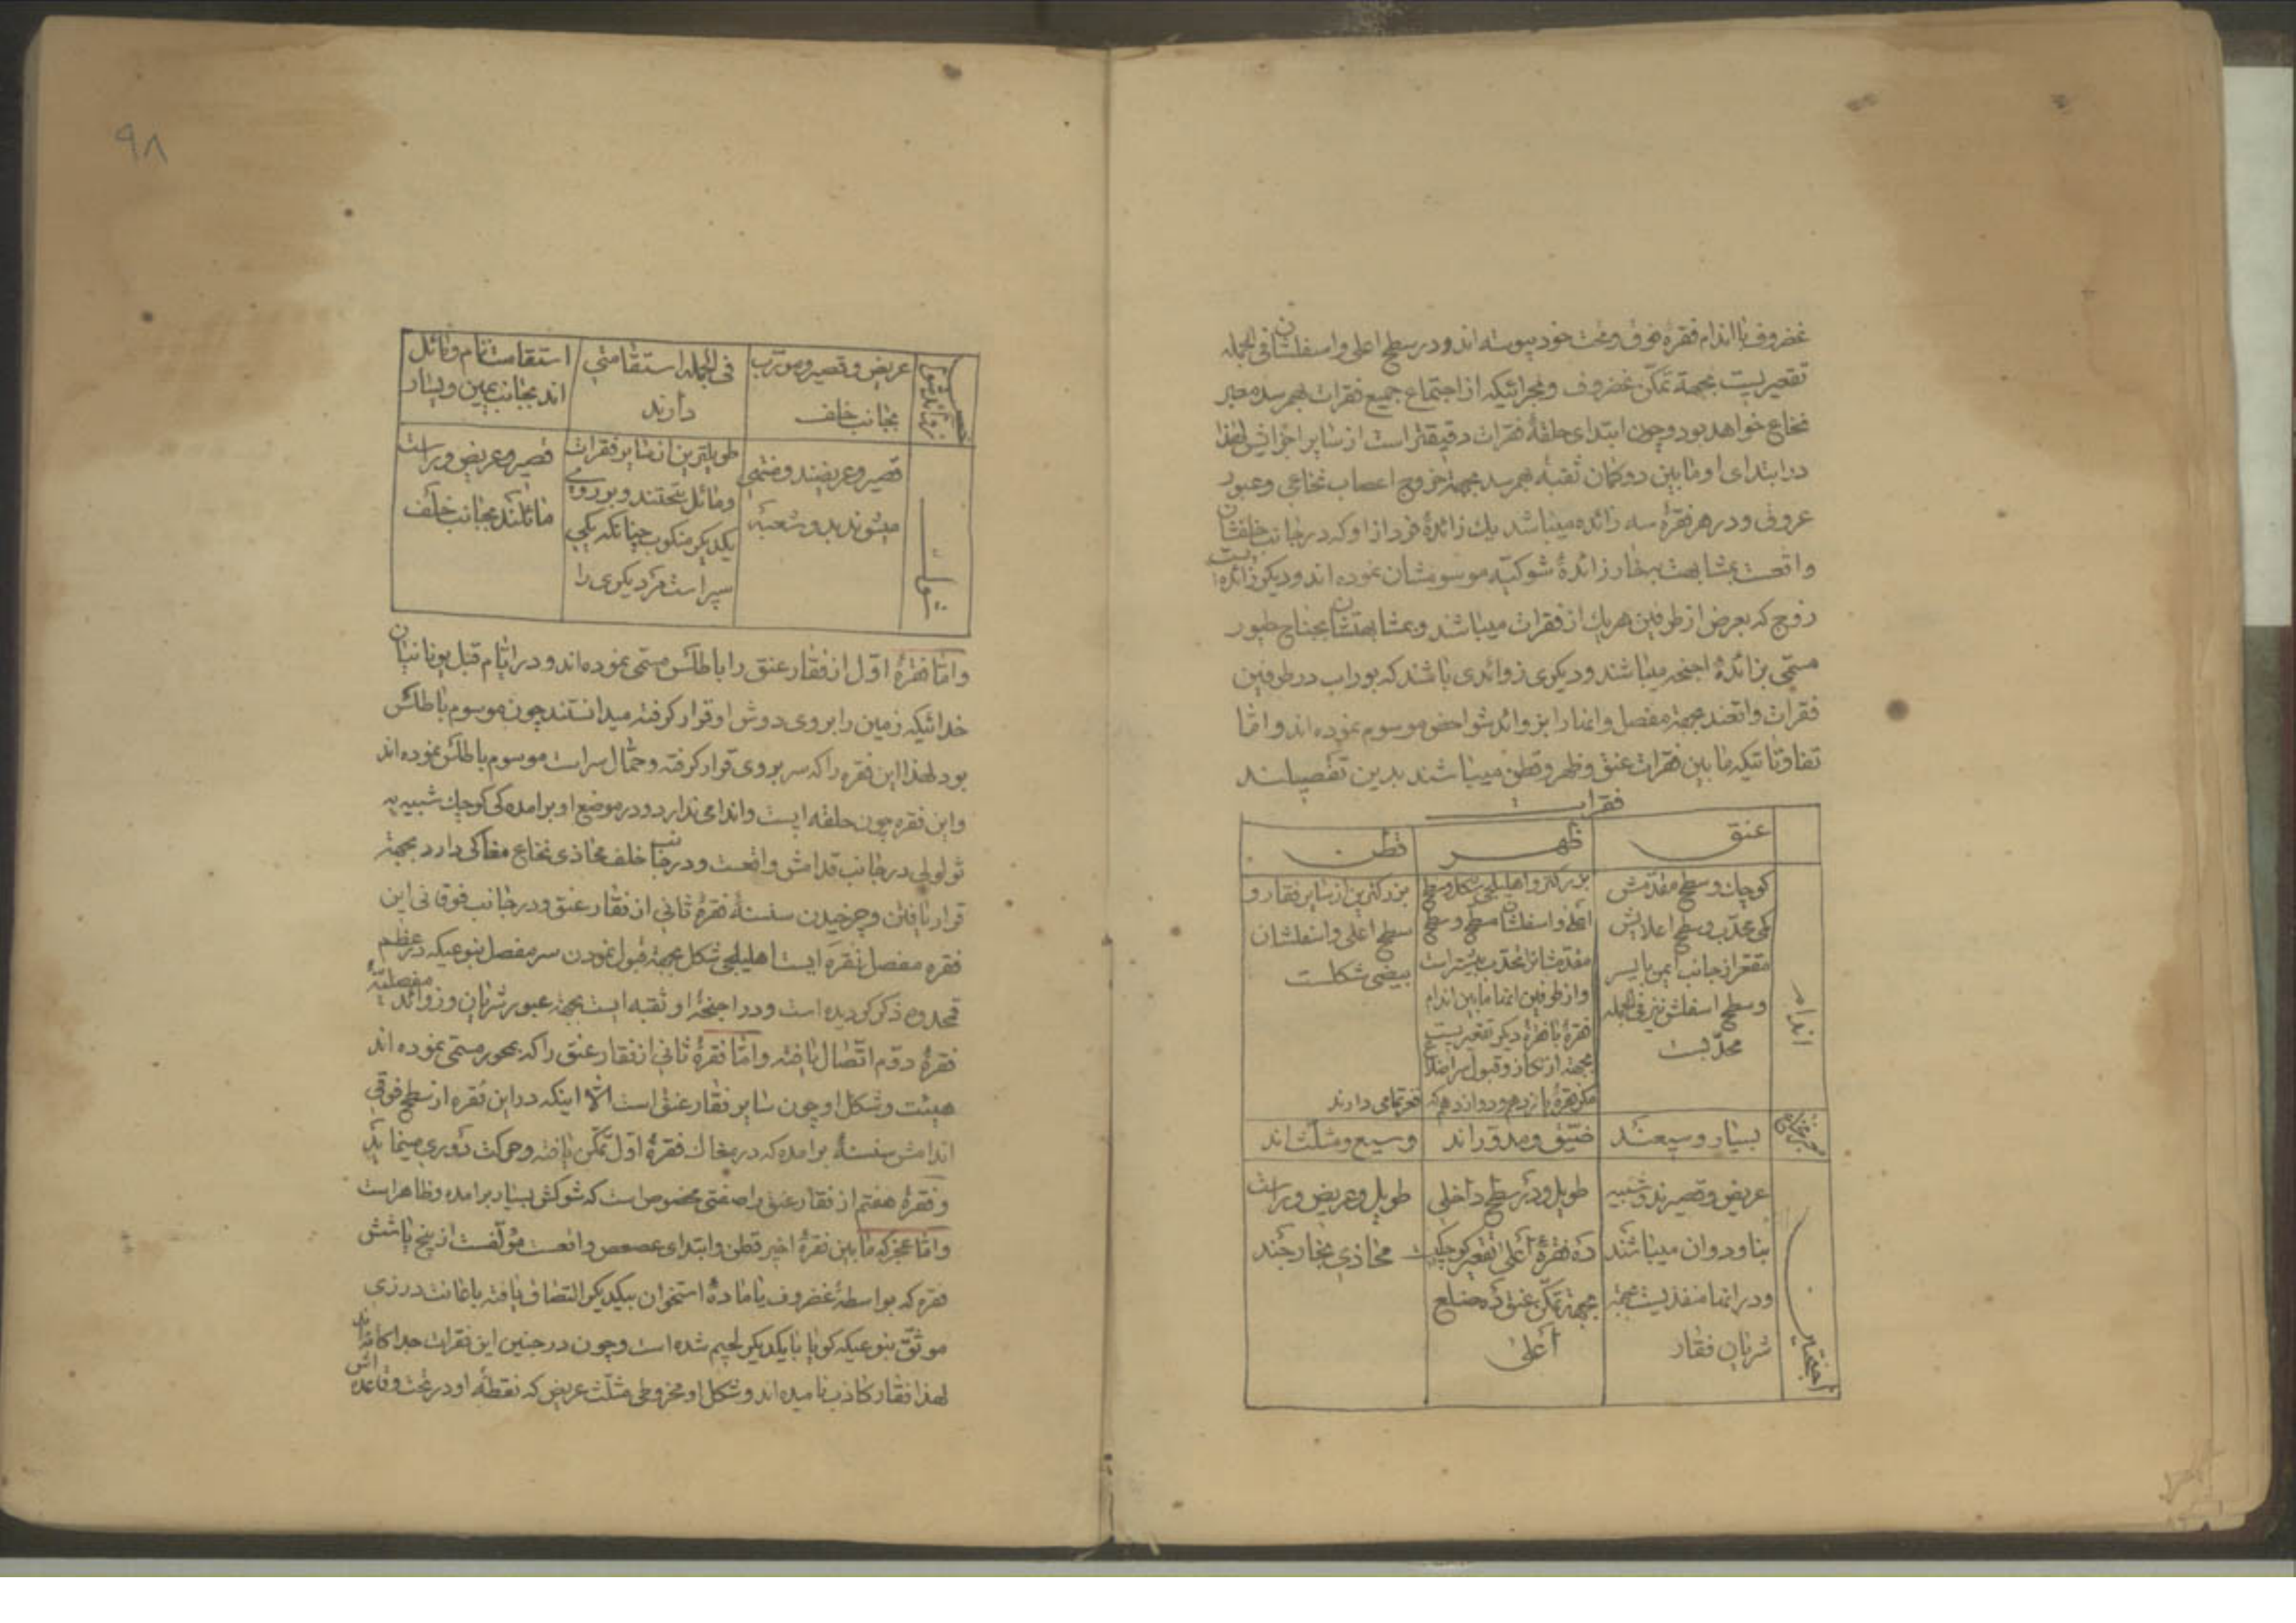 غضروف با اندام فقرهٔ فوق و تحت خود پیوسته اند و در سطح اعلی و اسفلشان فی الجمله
تقعیریست بجهة تمکّن غضروف و مجرائیکه از اجتماع جمیع فقرات بهم رسد معبر
نخاع خواهد بود و چون ابتدای حلقهٔ فقرات دقیقتر است از سایر اجزائش لهذا
در ابتدای او مابین دوکمان ثقبهٔ بهم رسد بجهة خروج اعصاب نخاعی و عبور
عروق و در هر فقرهٔ سه زائده میباشد یك زائدهٔ فرد از او که در جانب خلفشان
واقعست بمشابهت بخار زائدهٔ شوکیّه موسومشان نموده اند و دیگر زائده ایست
زوج که بعرض از طرفین هر یك از فقرات میباشند و بمشابهتشان بجناح طیور
مسمّی بزائدهٔ اجنحه میباشند و دیگری زوائدی باشند که بوراب در طرفین
فقرات واقعند بجهة مفصل و انها را بزوائد شواخص موسوم نموده اند و امّا
تفاوتاتیکه مابین فقرات عنق و ظهر و قطن میباشند بدین تفصیلند
فقرات
عنق ظهر قطن
اندام
کوچك و سطح مقدّمش
کمی محدّب و سطح اعلایش
مقعّر از جانب ایمن بایسر
و سطح اسفلش نیز فی الجمله
محدّبست
بزرکتر و اهلیلجی شکل و سطح
اعلی و اسفلشان مسطّح و سطح
مقدّمشان محدّب بیشتر است
و از طرفین انها مابین اندام
فقرهٔ با فقرهٔ دیکر تقعیریست
بجهة ارتکاز و قبول سر اضلاع
مکر فقرهٔ یازدهم و دوازدهم که قعر تمامی دارند
بزرکترین از سایر فقار و
سطح اعلی و اسفلشان
بیضی شکلست
بسیار وسیعند ضیّق و مدوّراند وسیع و مثلّث اند
عریض و قصیرند و شبیه
بناودان میباشند
و در انها منفذیست بجهة
شریان فقار
طویل و در سطح داخلی
ده فقرهٔ اعلی تقعیر کوچکیست
بجهة تمکّن عنق ده ضلع
اعلی
طویل و عریض و راست
محاذی بخار جند
زوائد شوکیه
عریض و قصیر و مورّب
بجانب خلف
فی الجمله استقامتی
دارند
استقامت تام و مائل
اند بجانب یمین و یسار
قصیر و عریضند و منتهی
میشوند بدو شعبهٔ
طویلترین از سایر فقرات
و مائل بتحتند و بر روی
یکدیکر منکوب چنانکه یکی
سپر است مر دیکری را
قصیر و عریض و راست
مائلند بجانب خلف
و امّا فقرهٔ اوّل از فقار عنق را باطلس مسمّی نموده اند و در ایّام قبل یونانیان
خدائیکه زمین را بروی دوش او قرار کرفته میدانستند چون موسوم باطلس
بود لهذا این فقره را که سر بروی قرار کرفته و حمّال سر است موسوم باطلس نموده اند
و این فقره چون حلقه ایست و اندامی ندارد و در موضع او برامده کی کوچك شبیه به
ثولولی در جانب قدامش واقعست و در جانب خلف محاذی نخاع مغاکی دارد بجهة
قرار یافتن و چرخیدن سنسنهٔ فقرهٔ ثانی از فقار عنق و در جانب فوقانی این
فقره مفصل نقره ایست اهلیلجی شکل بجهة قبول نمودن سر مفصل بنوعیکه در عظم
قمحدوه ذکر کردیده است و در اجنحهٔ او ثقبه ایست بجهة عبور شریان و زوائد مفصلیّهٔ
فقرهٔ دوّم اتّصال یافته و امّا فقرهٔ ثانی از فقار عنق را که بمحور مسمّی نموده اند
هیئت و شکل او چون سایر فقار عنق است الّا اینکه در این فقره از سطح فوقی
اندامش سنسنهٔ برامده که در مغاك فقرهٔ اوّل تمکّن یافته و حرکت دوری مینماید
و فقرهٔ هفتم از فقار عنق را صفتی مخصوص است که شوکش بسیار برامده و ظاهر است
و امّا عجز که مابین فقرهٔ اخیر قطن و ابتدای عصعص واقعست مؤلّفست از پنج یا شش
فقره که بواسطهٔ غضروف یا مادهٔ استخوان بیکدیکر التصاق یافته باعانت درزی
موثّق بنوعیکه کویا با یکدیکر لحیم شده است و چون در جنین این فقرات جداکانه اند
لهذا فقار کاذب نامیده اند و شکل او مخروطی مثلّث عریض که نقطهٔ او در تحت و قاعده اش
۹۸